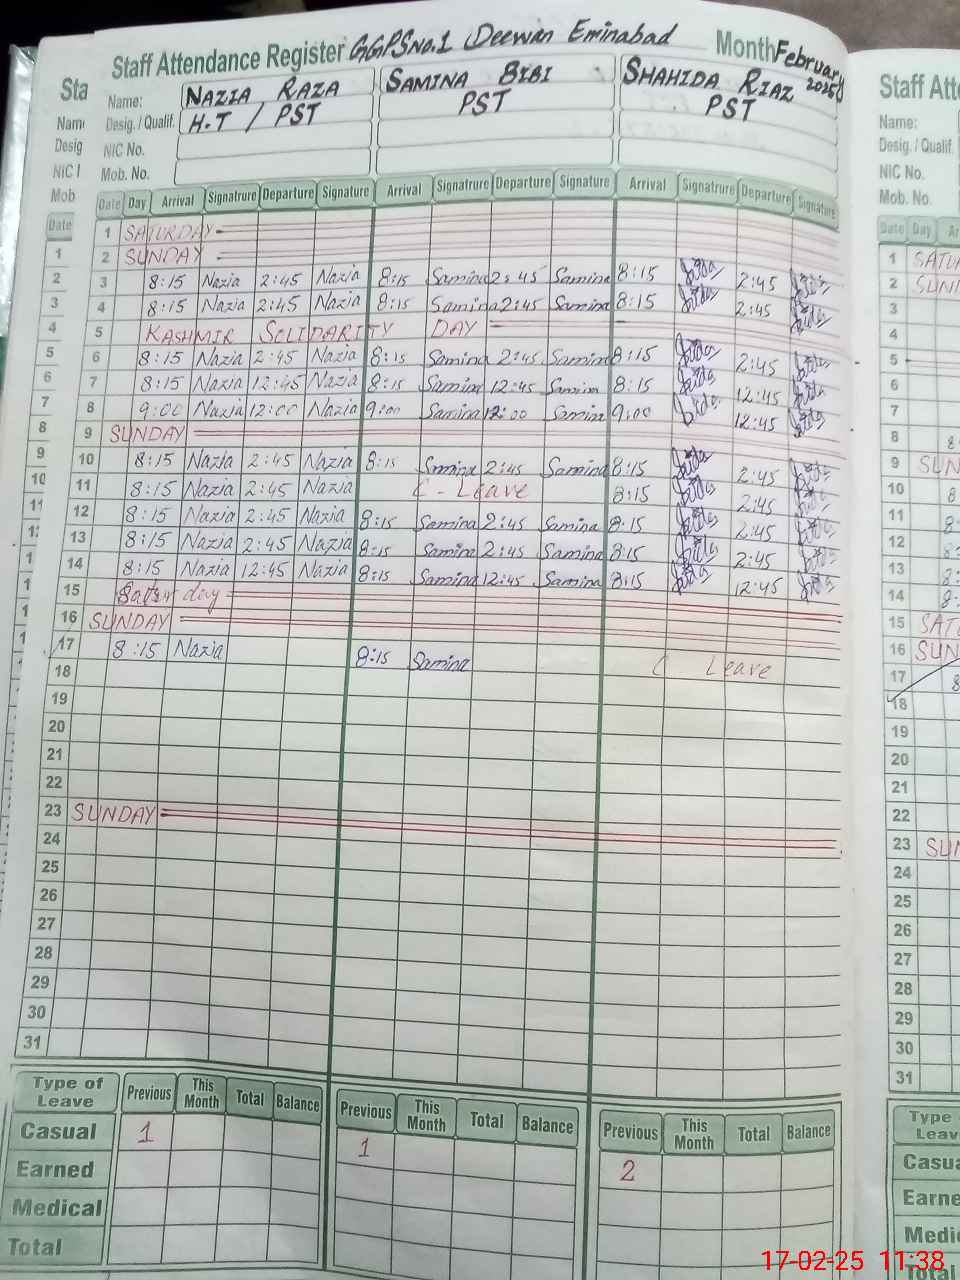 Staff Attendance Register GGPSNo.1 Deewan Eminabad Month February 2025
Name: NAZIA RAZA SAMINA BIBI SHAHIDA RIAZ
Desig. / Qualif. H.T / PST PST PST
NIC No.
Mob. No.
Date Day Arrival Signatrure Departure Signature Arrival Signatrure Departure Signature Arrival Signatrure Departure Signature
1 SATURDAY
2 SUNDAY
3 8:15 Nazia 2:45 Nazia 8:15 Samina 2:45 Samina 8:15 2:45
4 8:15 Nazia 2:45 Nazia 8:15 Samina 2:45 Samina 8:15 2:45
5 KASHMIR SOLIDARITY DAY
6 8:15 Nazia 2:45 Nazia 8:15 Samina 2:45 Samina 8:15 2:45
7 8:15 Nazia 12:45 Nazia 8:15 Samina 12:45 Samina 8:15 12:45
8 9:00 Nazia 12:00 Nazia 9:00 Samina 12:00 Samina 9:00 12:45
9 SUNDAY
10 8:15 Nazia 2:45 Nazia 8:15 Smina 2:45 Samina 8:15 2:45
11 8:15 Nazia 2:45 Nazia C - Leave 8:15 2:45
12 8:15 Nazia 2:45 Nazia 8:15 Samina 2:45 Samina 8:15 2:45
13 8:15 Nazia 2:45 Nazia 8:15 Samina 2:45 Samina 8:15 2:45
14 8:15 Nazia 12:45 Nazia 8:15 Samina 12:45 Samina 8:15 12:45
15 Saturday
16 SUNDAY
17 8:15 Nazia 8:15 Samina C Leave
18
19
20
21
22
23 SUNDAY
24
25
26
27
28
29
30
31
Type of Leave Previous This Month Total Balance Previous This Month Total Balance Previous This Month Total Balance
Casual 1 1 2
Earned
Medical
Total
Sta
Nam
Desig
NIC
Mob
Date
1
2
3
4
5
6
7
8
9
10
11
Staff Atte
Name:
Desig. / Qualif.
NIC No.
Mob. No.
Date Day Ar
1 SATU
2 SUN
3
4
5
6
7
8 8
9 SUN
10 8
11 8
12 8
13 8
14 8
15 SAT
16 SUN
17 8
18
19
20
21
22
23 SUN
24
25
26
27
28
29
30
31
Type
Leav
Casua
Earne
Medi
Total
17-02-25 11:38